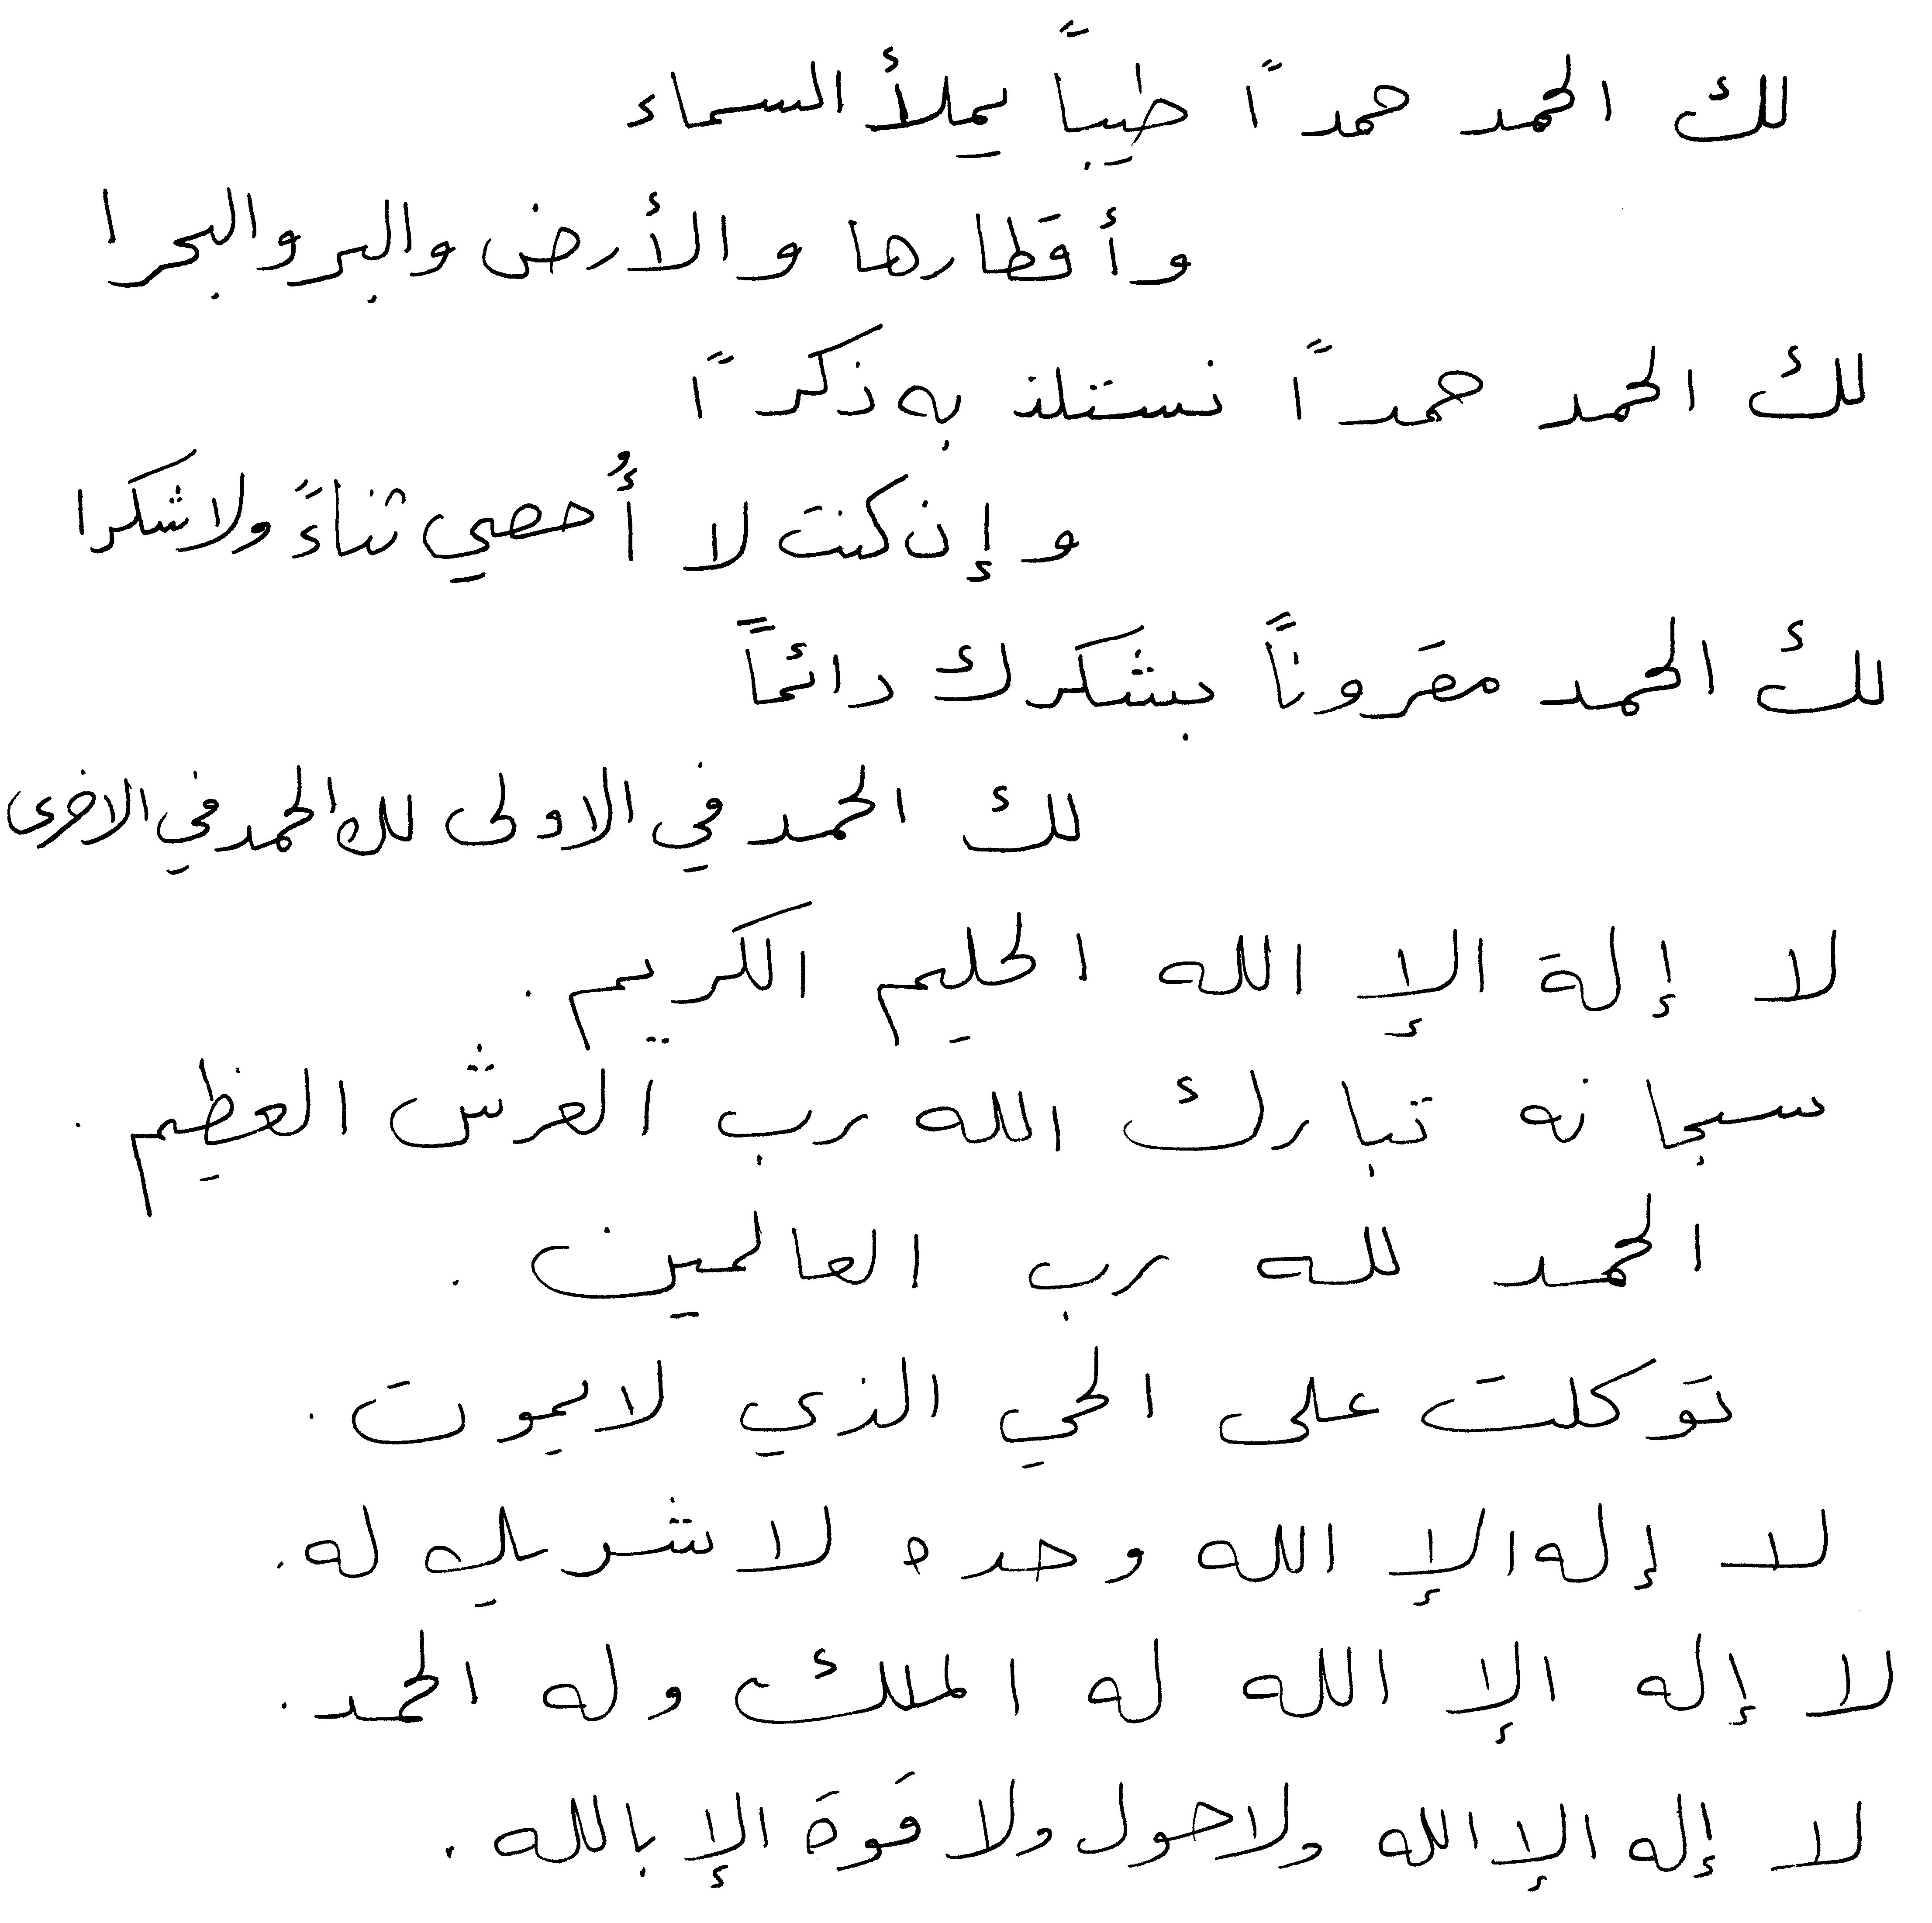 لك الحمد حمداً طيباً يملأ السماء
وأقطارها والأرض والبر والبحرا
لك الحمد حمداً نستلذ به ذكراً
وإن كنت لا أُحصي ثناءً ولا شكرا
لك الحمد مقروناً بشكرك دائماً
لك الحمد في الاولى لك الحمد في الاخرى
لا إلة الإ الله الحليم الكريم .
سبحانه تبارك الله رب العرش العظيم .
الحمد لله رب العالمين .
توكلت على الحي الذي لا يموت .
لا إله الإ الله وحده لا شريك له .
لا إله الإ الله له الملك وله الحمد .
لا إله الإ الله ولا حول ولا قوة الإ بالله .